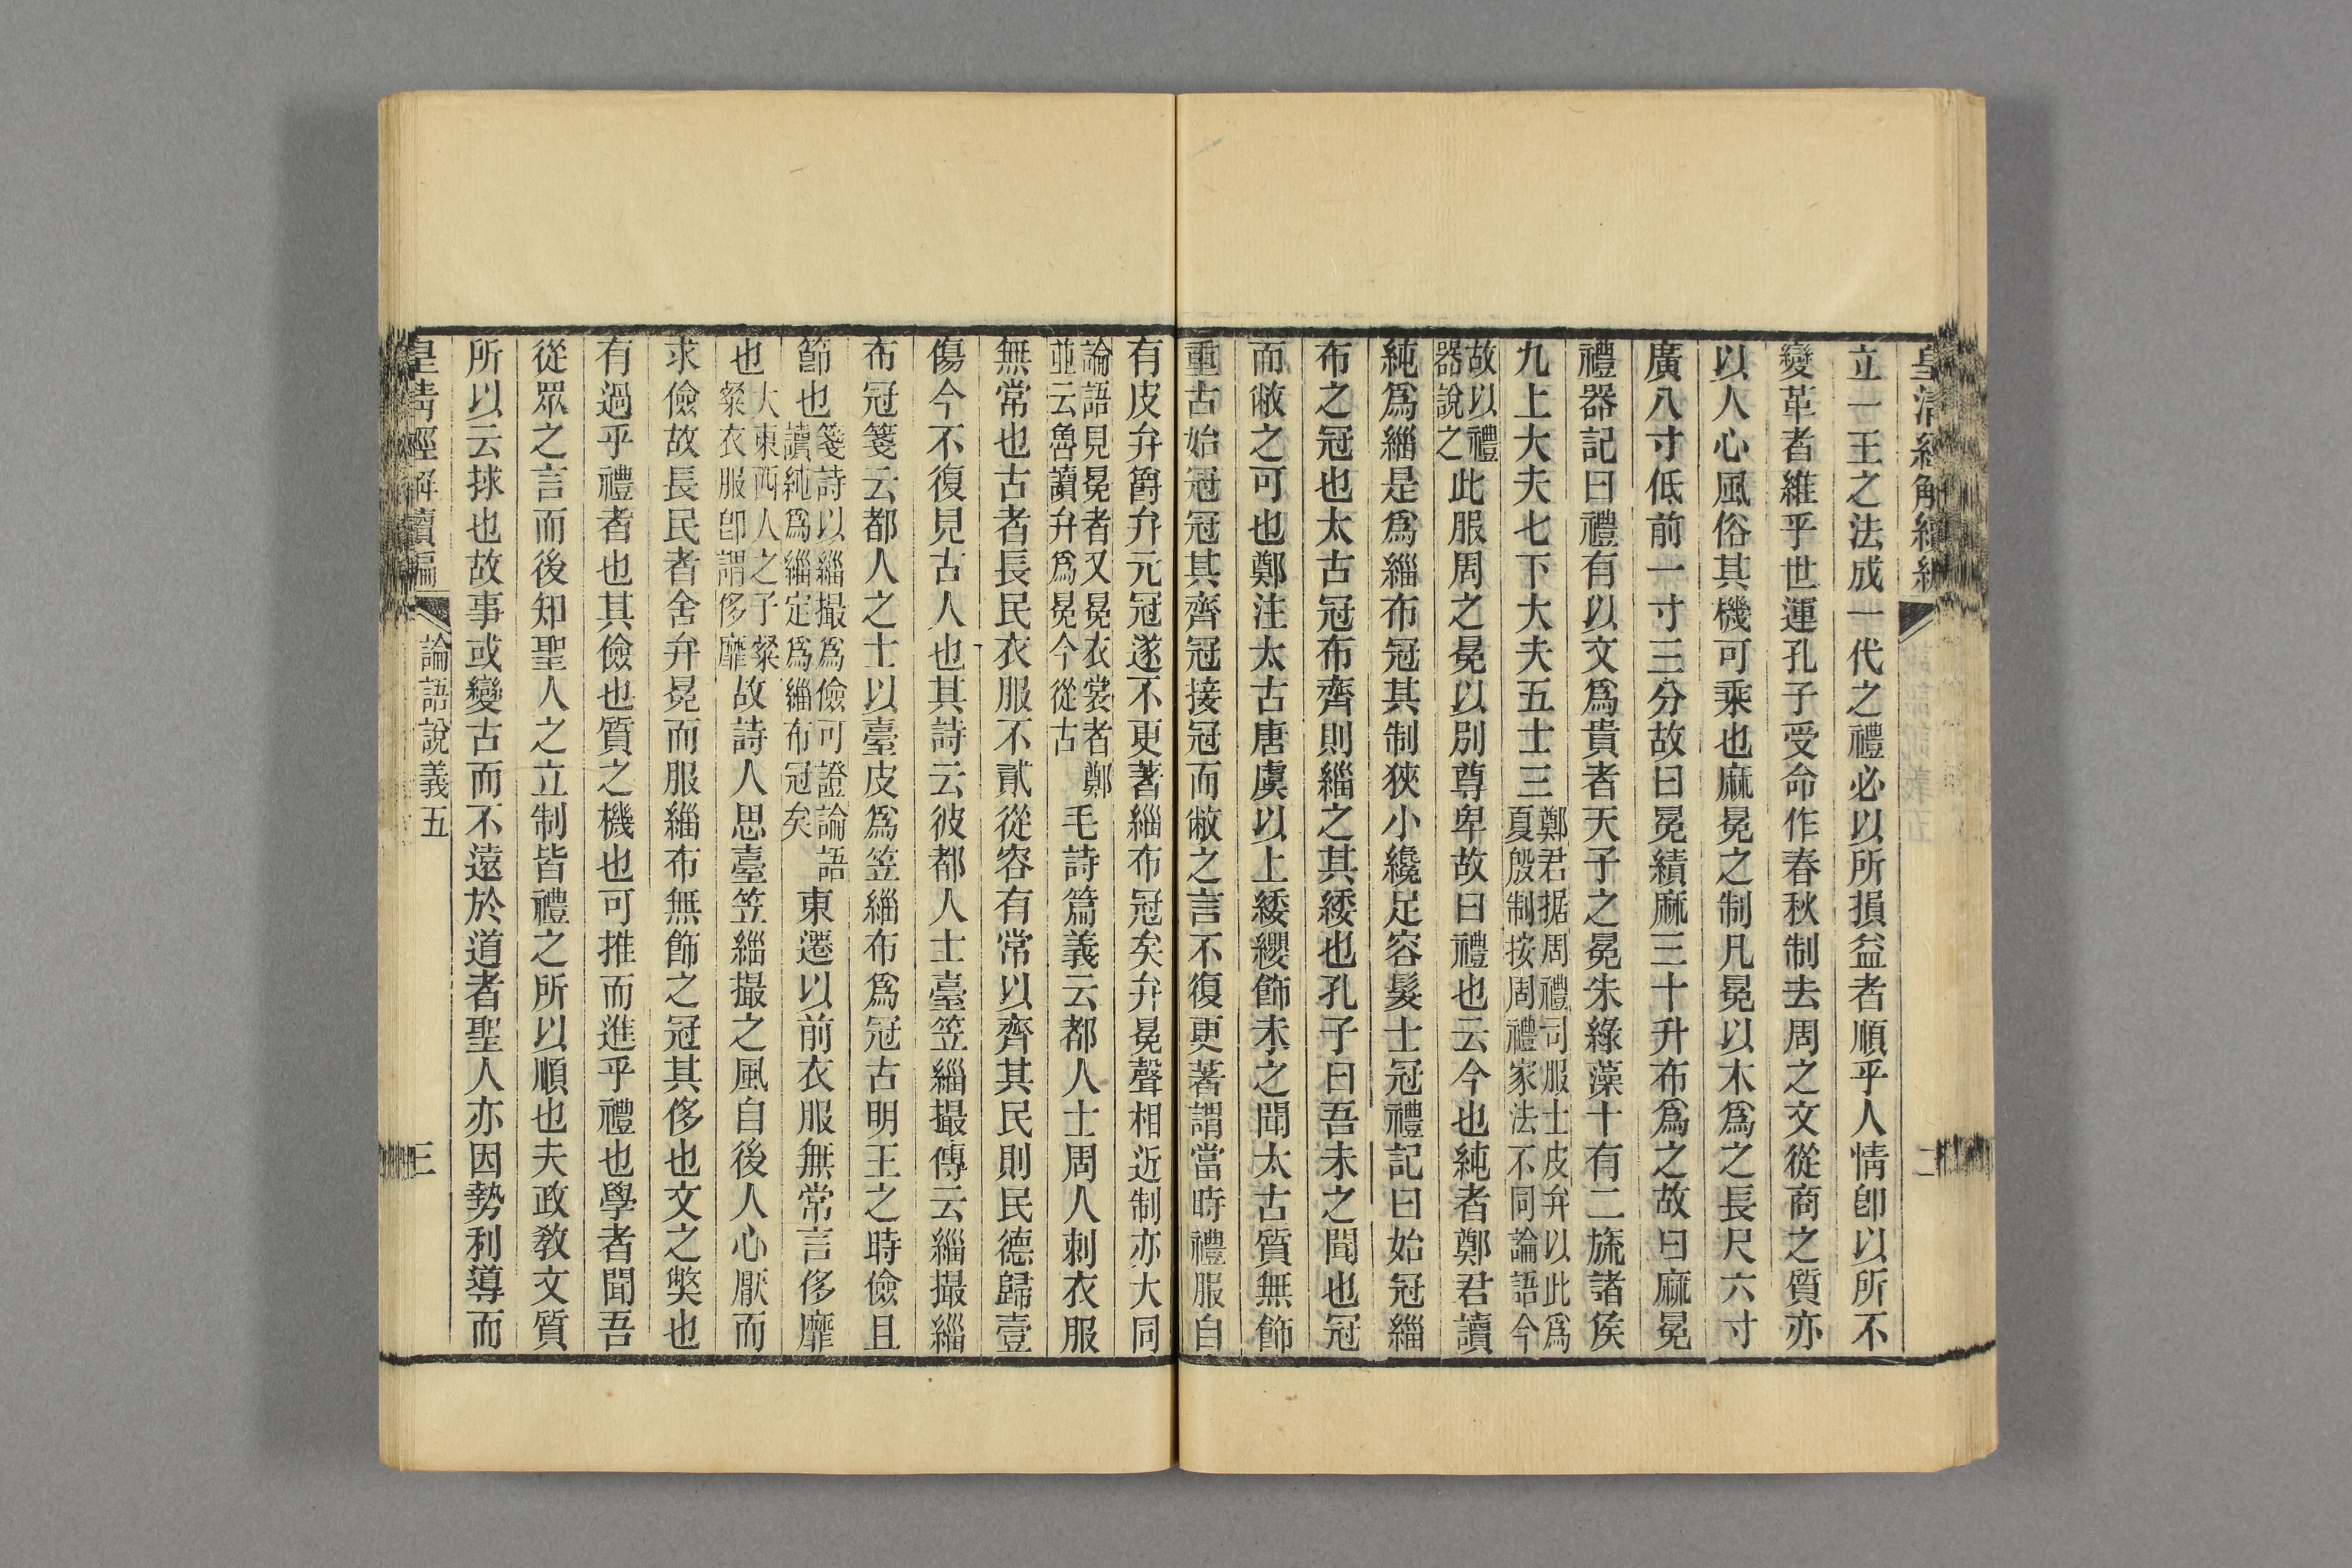 皇清經解續編
二
立一王之法成一代之禮必以所損益者順乎人情卽以所不
變革者維乎世運孔子受命作春秋制去周之文從商之質亦
以人心風俗其機可乘也麻冕之制凡冕以木爲之長尺六寸
廣八寸低前一寸三分故曰冕績麻三十升布爲之故曰麻冕
禮器記曰禮有以文爲貴者天子之冕朱綠藻十有二旒諸侯
九上大夫七下大夫五士三鄭君据周禮司服士皮弁以此爲
夏殷制按周禮家法不同論語今
故以禮
器說之此服周之冕以別尊卑故曰禮也云今也純者鄭君讀
純爲緇是爲緇布冠其制狹小纔足容髮士冠禮記曰始冠緇
布之冠也太古冠布齊則緇之其緌也孔子曰吾未之聞也冠
而敝之可也鄭注太古唐虞以上緌纓飾未之聞太古質無飾
重古始冠冠其齊冠接冠而敝之言不復更著謂當時禮服自
有皮弁爵弁元冠遂不更著緇布冠矣弁冕聲相近制亦大同
論語見冕者又冕衣裳者鄭
並云魯讀弁爲冕今從古毛詩篇義云都人士周人刺衣服
無常也古者長民衣服不貳從容有常以齊其民則民德歸壹
傷今不復見古人也其詩云彼都人士臺笠緇撮傳云緇撮緇
布冠箋云都人之士以臺皮爲笠緇布爲冠古明王之時儉且
節也箋詩以緇撮爲儉可證論語
讀純爲緇定爲緇布冠矣東遷以前衣服無常言侈靡
也大東西人之子粲
粲衣服卽謂侈靡故詩人思臺笠緇撮之風自後人心厭而
求儉故長民者舍弁冕而服緇布無飾之冠其侈也文之獘也
有過乎禮者也其儉也質之機也可推而進乎禮也學者聞吾
從眾之言而後知聖人之立制皆禮之所以順也夫政敎文質
所以云捄也故事或變古而不遠於道者聖人亦因勢利導而
皇清經解續編
論語說義五
三